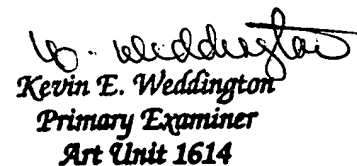 K. Weddington
Kevin E. Weddington
Primary Examiner
Art Unit 1614